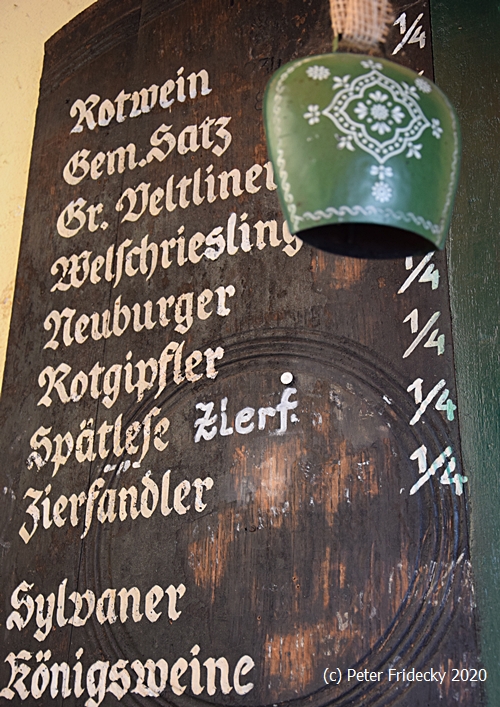 1/4
Rotwein
Gem. Satz
Gr. Veltliner
Welschriesling
1/4
Neuburger
1/4
Rotgipfler
1/4
Spätlese Zierf.
1/4
Zierfandler
Sylvaner
Königsweine
(c) Peter Fridecky 2020